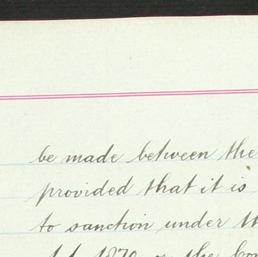 be made between the
provided that it is
to sanction under th
Act 1870 or the Com